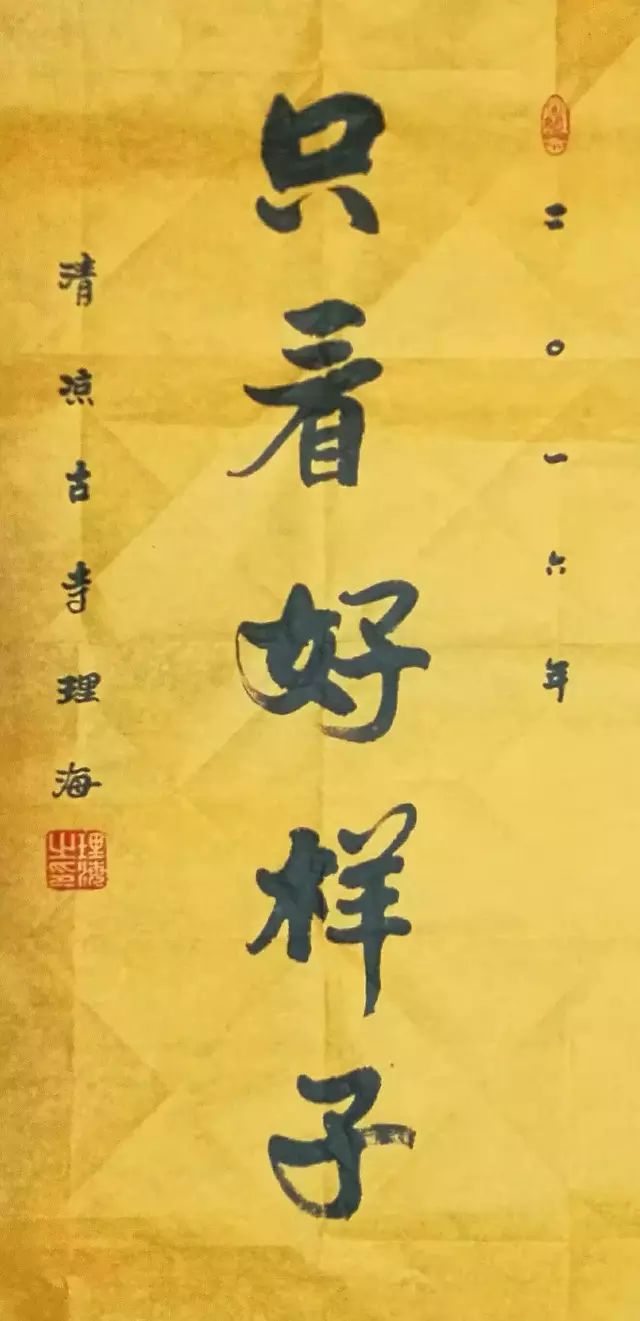 二〇一六年
只看好样子
清凉古寺理海
理海之印